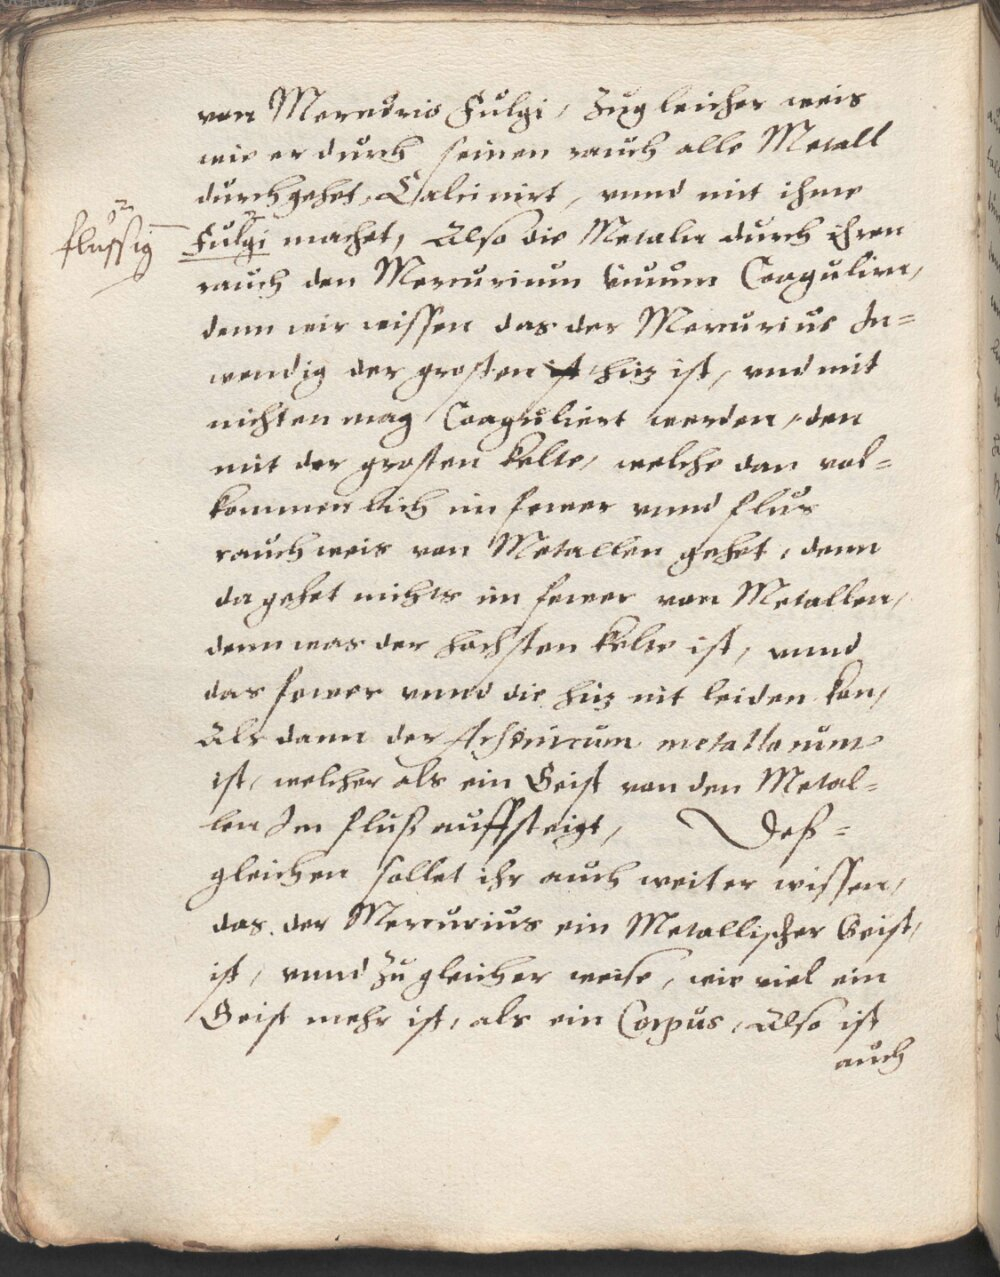 von Mercúrio Fulgi, Zúgleicher weis
wie er dúrch seinen rauch alle Metall
dúrchgehet, Calcinirt, vnnd mit ihme
flússig
Fúlgi machet, Also die Metaln dúrch ihren
rauch den Mercúriúm viúúm Coagúlirn,
denn wir wissen das der Mercúriús In=
wendig der grosten hitz ist, vnd mit
nichten mag Coagúliert werden, den
mit der grosten kelte, welche dan vol=
kommenlich im fewer vnnd flús
rauch weis von Metallen gehet, denn
da gehet nichts im fewer von Metallen,
denn was der hochsten kelte ist, vnnd
das fewer vnnd die hitz nit leiden kan,
Als dann der Arsenicúm metallorúm
ist, welcher als ein Geist von den Metal=
len Im flúß auffsteigt, Deß=
gleichen sollet ihr auch weiter wissen,
das der Mercúriús ein Metallischer Geist,
ist, vnnd zú gleicher weise, wie viel ein
Geist mehr ist, als ein Corpús, Also ist
aúch